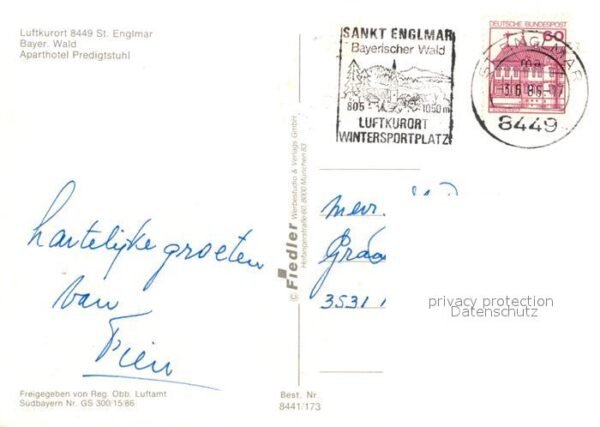 Luftkurort 8449 St. Englmar
Bayer. Wald
Aparthotel Predigtstuhl
SANKT ENGLMAR
Bayerischer Wald
805 - 1050 m
LUFTKURORT
WINTERSPORTPLATZ
DEUTSCHE BUNDESPOST
60
ST ENGLMAR
8449
hartelijke groeten
van
Fien
© Fiedler Werbestudio & Verlags GmbH
8000 München 83
mevr.
3531
privacy protection
Datenschutz
Freigegeben von Reg. Obb. Luftamt
Südbayern Nr. GS 300/15/86
Best. Nr.
8441/173